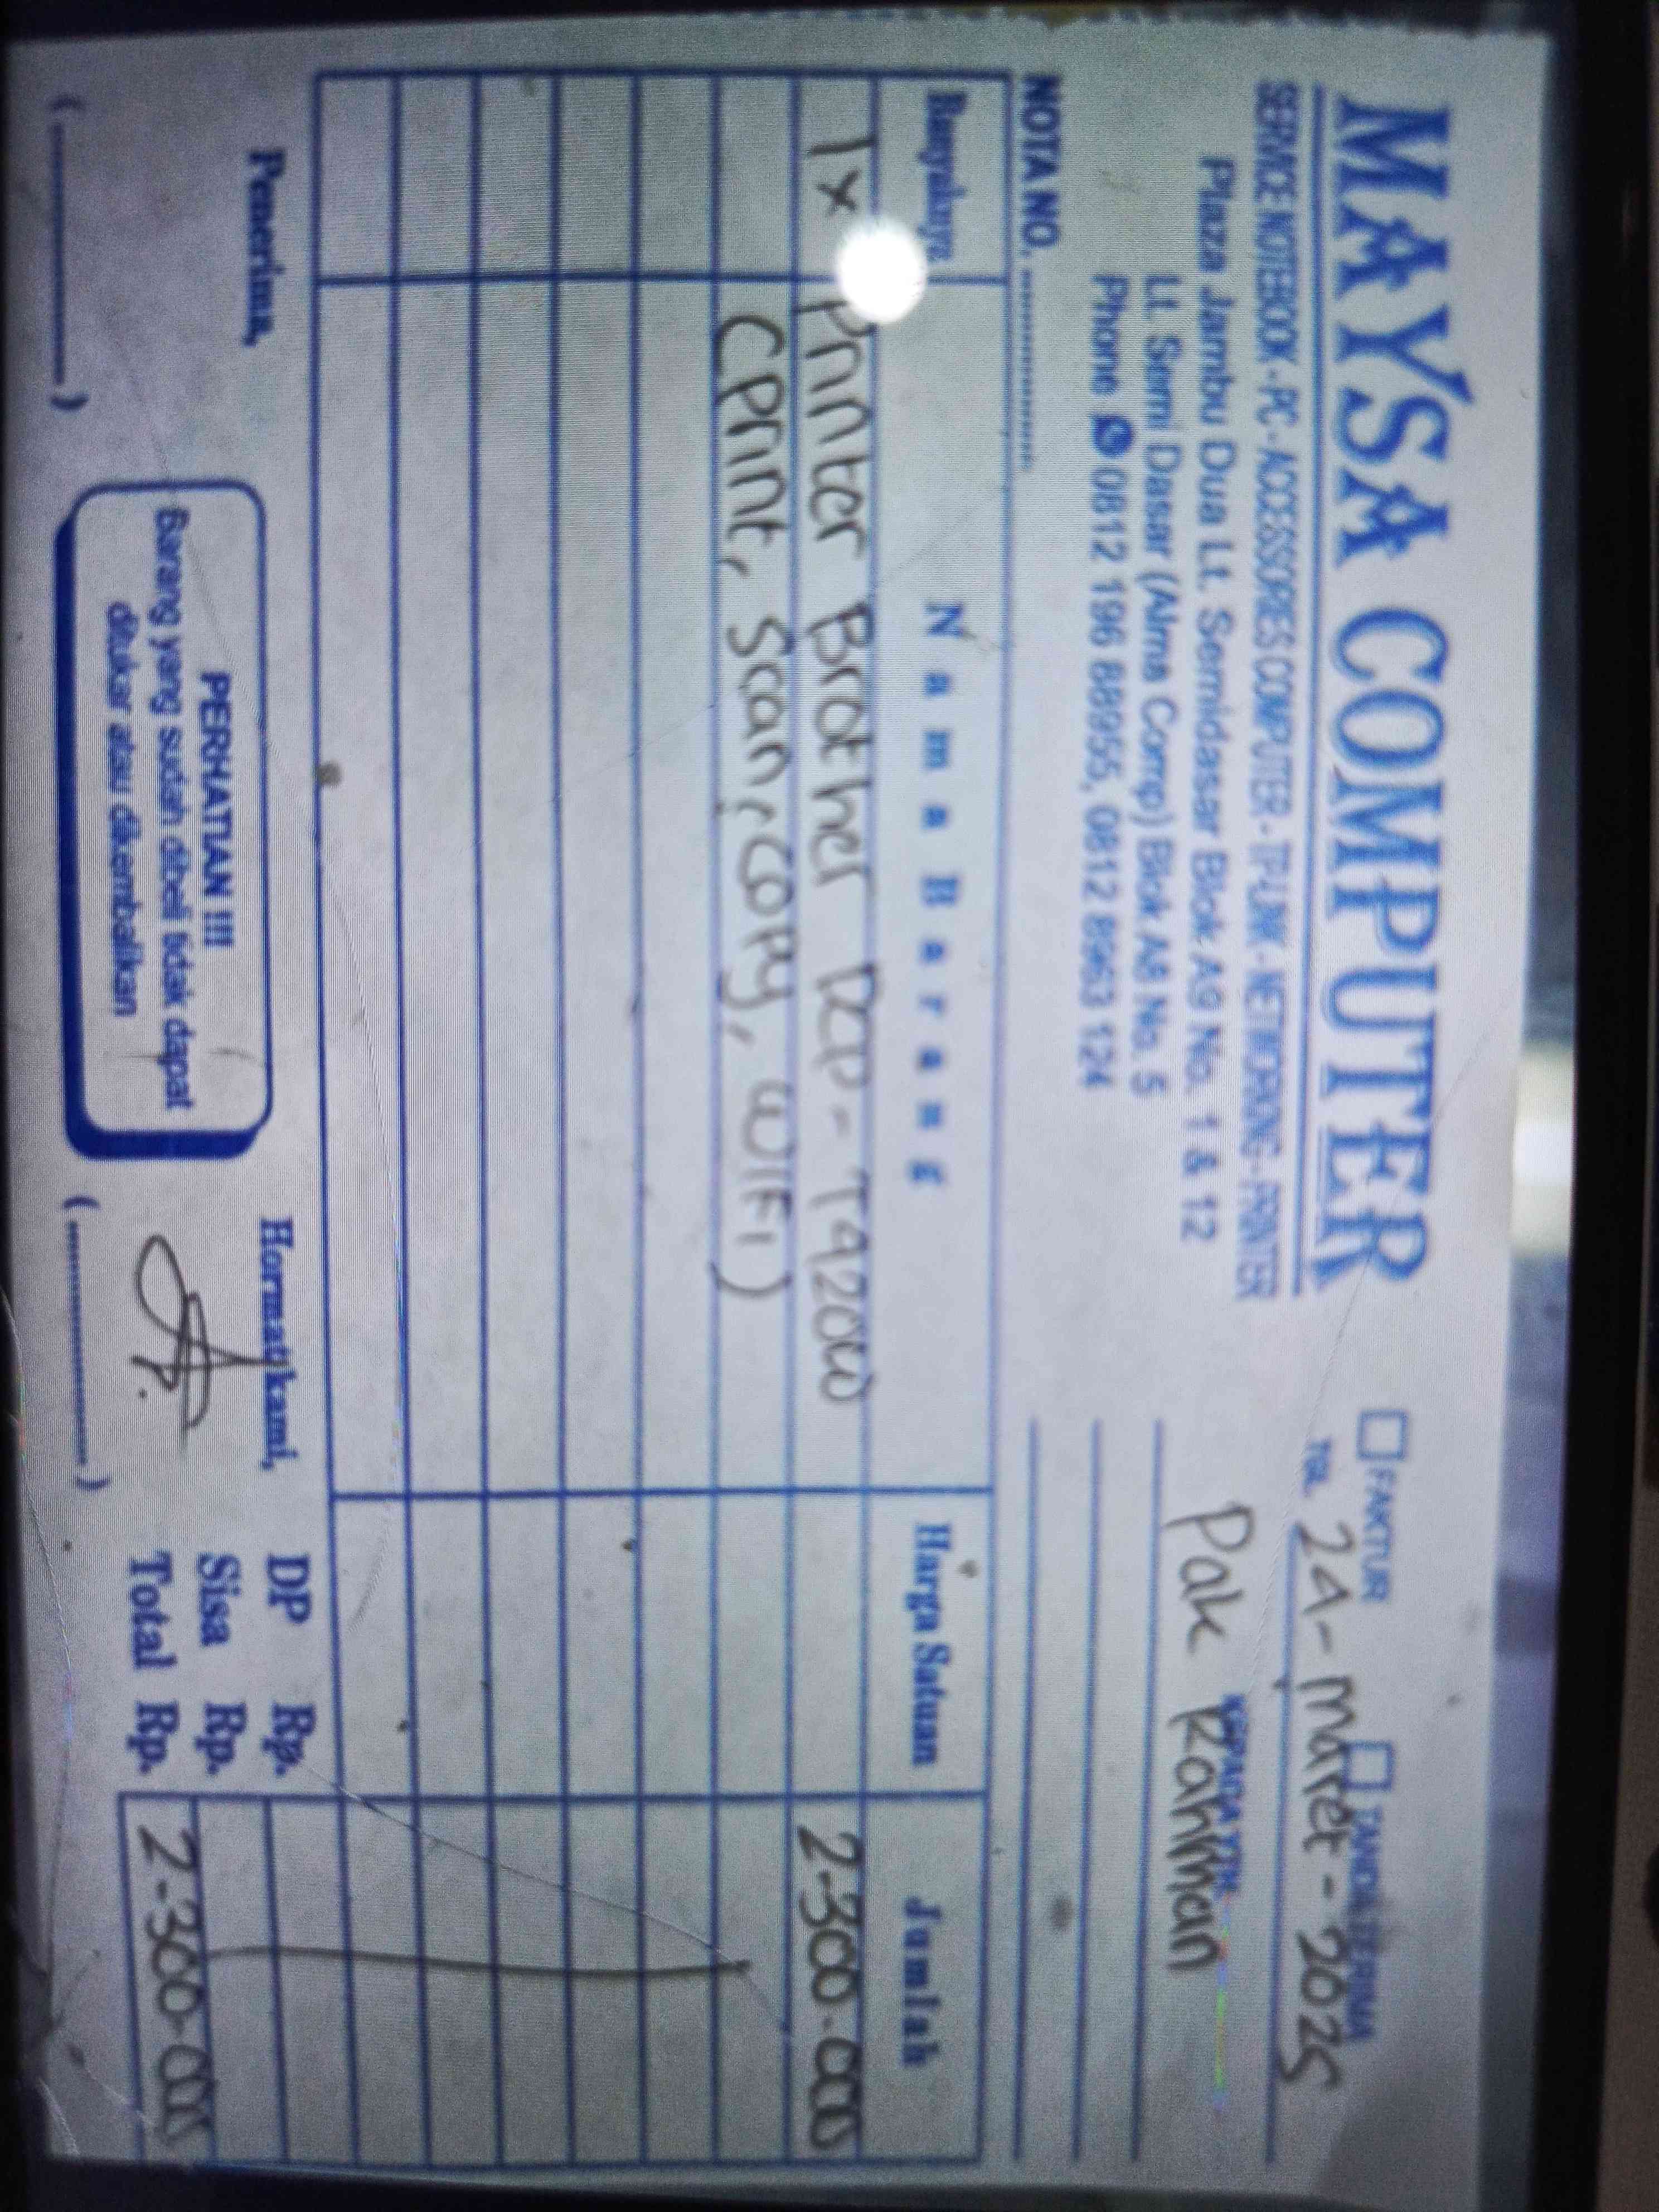 MAYSA COMPUTER
SERVICE NOTEBOOK - PC - ACCESSORIES COMPUTER - TP-LINK - NETWORKING - PRINTER
Plaza Jambu Dua Lt. Semidasar Blok A9 No. 1 & 12
Lt. Semi Dasar (Alma Comp) Blok A8 No. 5
Phone 0812 196 88955, 0812 8963 124
FAKTUR TANDA TERIMA
TGL. 24 - Maret - 2025
KEPADA YTH.
Pak Rahman
NOTA NO. ..............
Banyaknya Nama Barang Harga Satuan Jumlah
1x Printer Brother DCP - T420W 2.300.000
(Print, Scan, Copy, WIFI)
Penerima,
PERHATIAN !!!
Barang yang sudah dibeli tidak dapat
ditukar atau dikembalikan
Hormat kami,
DP Rp.
Sisa Rp.
Total Rp. 2.300.000